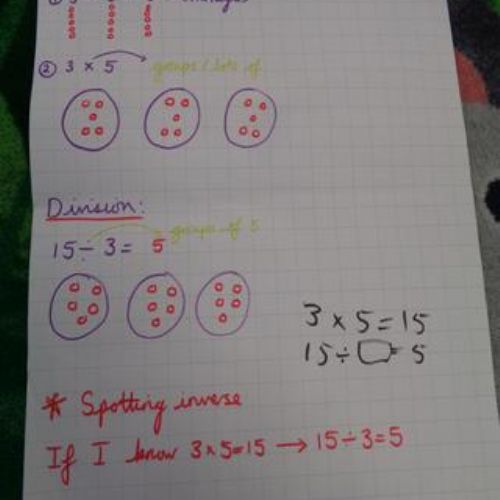 ② 3 × 5 groups / lots of
Division:
groups of 5
15 ÷ 3 = 5
3 × 5 = 15
15 ÷ □ = 5
* Spotting inverse
If I know 3×5=15 → 15÷3=5